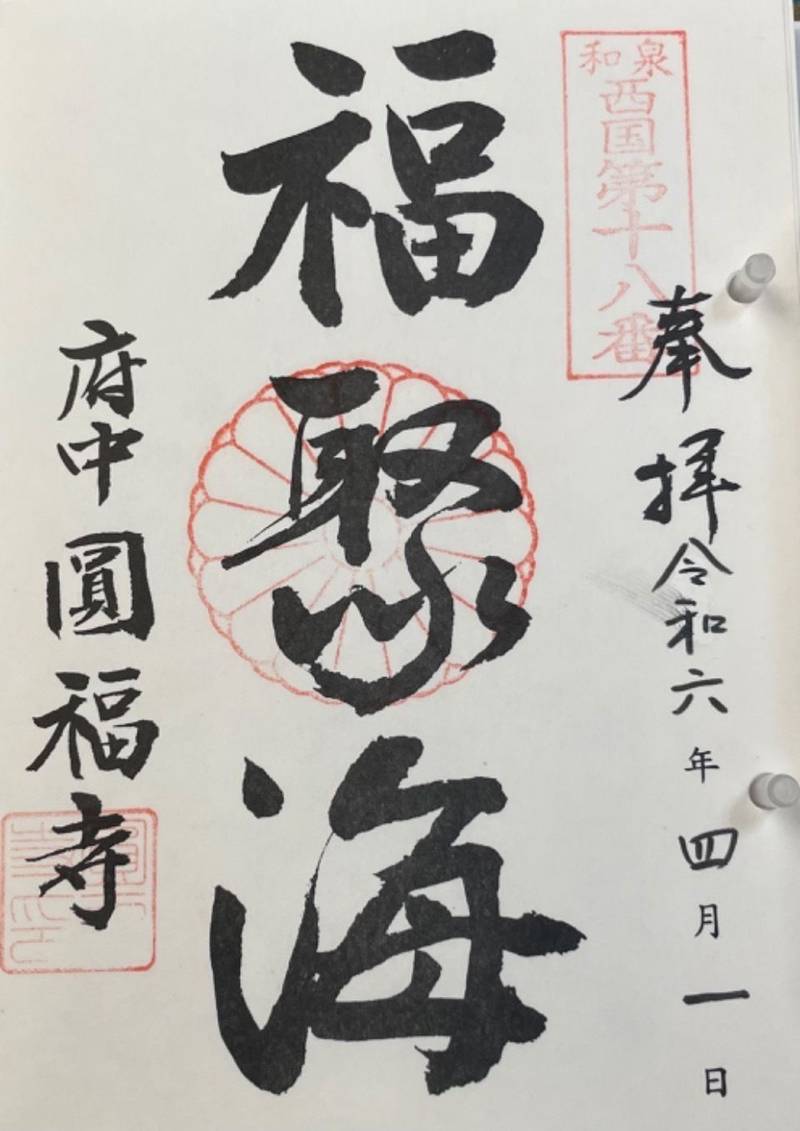 和泉
西国第十八番
奉拝
令和六年四月一日
福聚海
府中
圓福寺